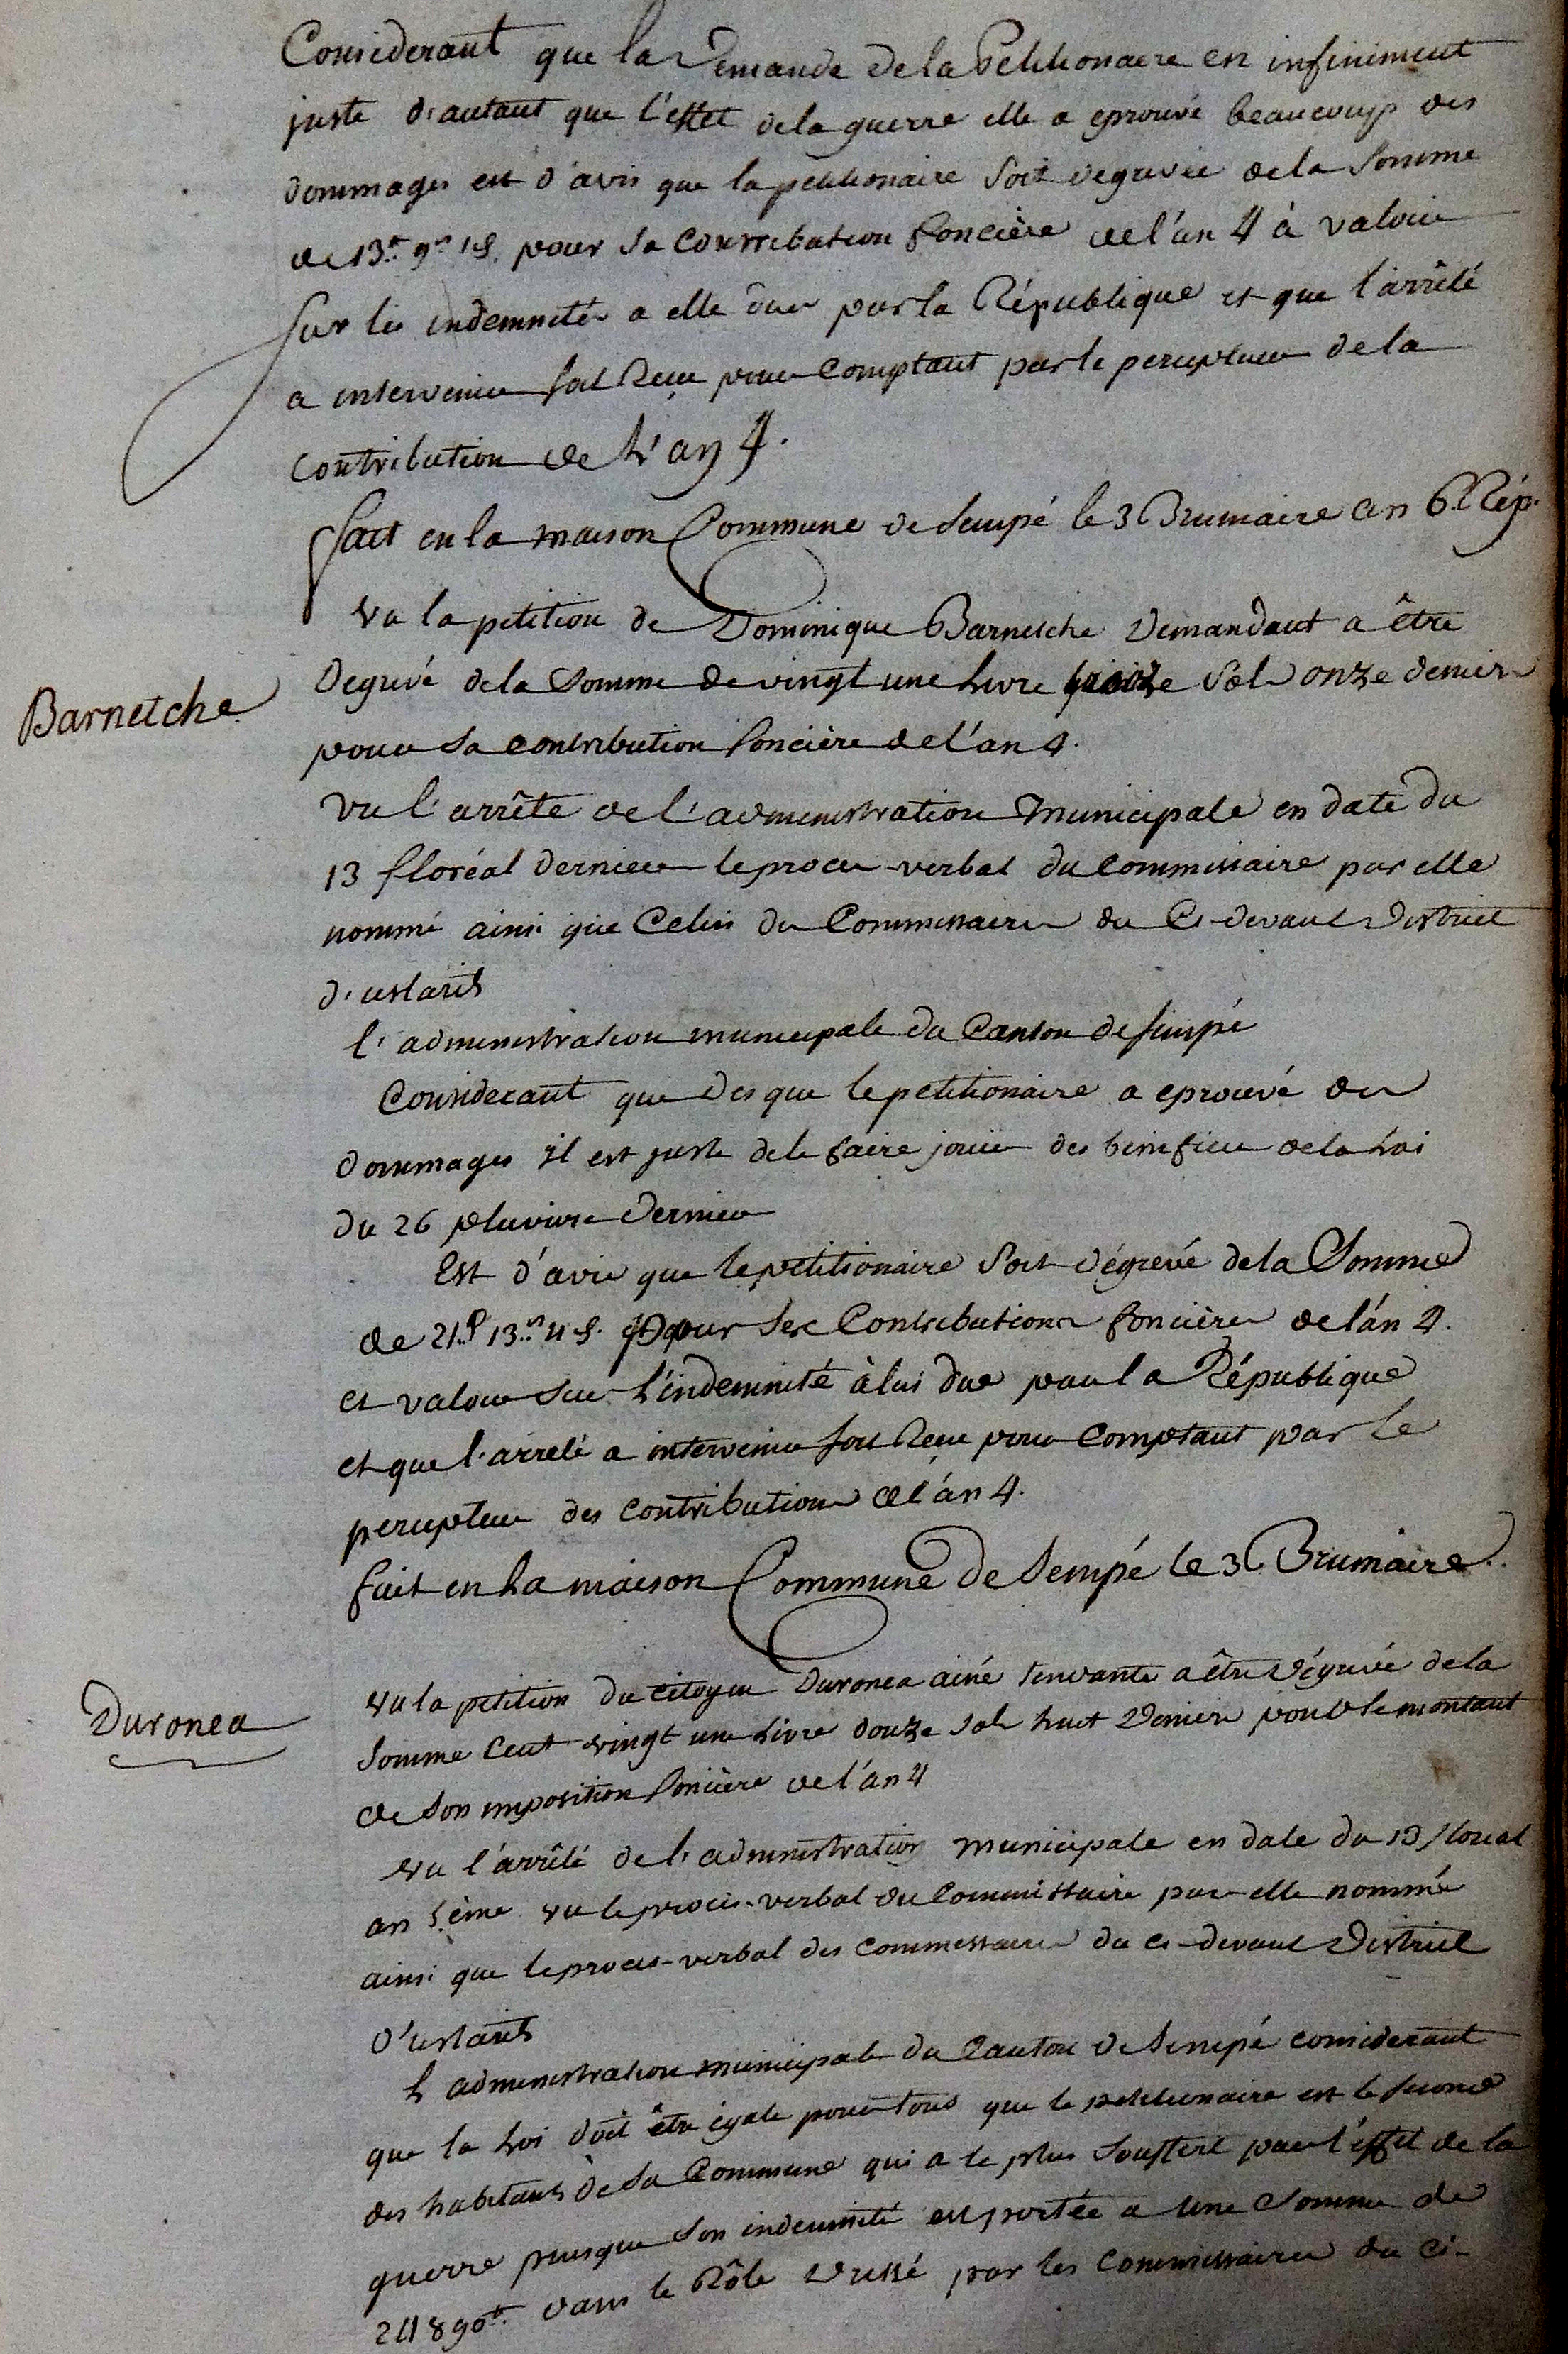 Considerant que la Demande de la Petitionaire en infiniment
juste d'autant que l'effet de la guerre elle a eprouvé beaucoup des
dommages est d'avis que la petitionaire soit degrevée de la somme
de 13tt 9s pour sa Contribution foncière de l'an 4 à valoir
sur les indemnités a elle dues par la République et que l'arrêté
a intervenir soit Reçu pour comptant par le percepteur de la
contribution de L'an 4.
fait en la maison Commune de Sempé le 3 Brumaire an 6 Rép.
Vu la petition de Dominique Barnetche Demandant a être
Barnetche
Degrevé de la Somme de vingt une Livre treize Sols onze deniers
pour sa contribution foncière de l'an 4.
Vu l'arrêté de l'administration Municipale en date du
13 floréal dernier le procès-verbal du commissaire par elle
nommé ainsi que Celui du Commissaires du Ci-devant District
d'ustarits
l'administration municipale du Canton de Sempé
Considerant que des que le petitionaire a eprouvé des
dommages il est juste de le faire jouir des benefices de la Loi
du 26 pluviose dernier
Est d'avis que le petitionaire soit dégrevé de la Somme
de 21tt 13s 11 d. pour ses Contributions foncières de l'an 4.
et valoir sur L'indemnité à lui due par la République
et que l'arrelé a intervenir soit Reçu pour comptant par le
percepteur des contributions de l'an 4.
fait en La maison Commune De Sempé le 3 Brumaire.
Vu la petition du citoyen Duronea ainé tendante a être dégrevé de la
Duronea
Somme Cent vingt une Livre douze Sols huit Deniers pour le montant
de son imposition foncière de l'an 4
Vu l'arrêté de l'administration Municipale en date du 13 floreal
an 5ème vu le procès-verbal du Commissaire par elle nommé
ainsi que le proces-verbal des commissaires du ci-devant District
d'ustarits
L'administration municipale du Canton de Sempé considerant
que la Loi doit être égale pour tous que le petitionaire est le second
des habitants de sa Commune qui a le plus souffert par l'effet de la
guerre puisque son indemnité est portée a une somme de
24890tt dans le Rôle dressé par les Commissaires du ci-